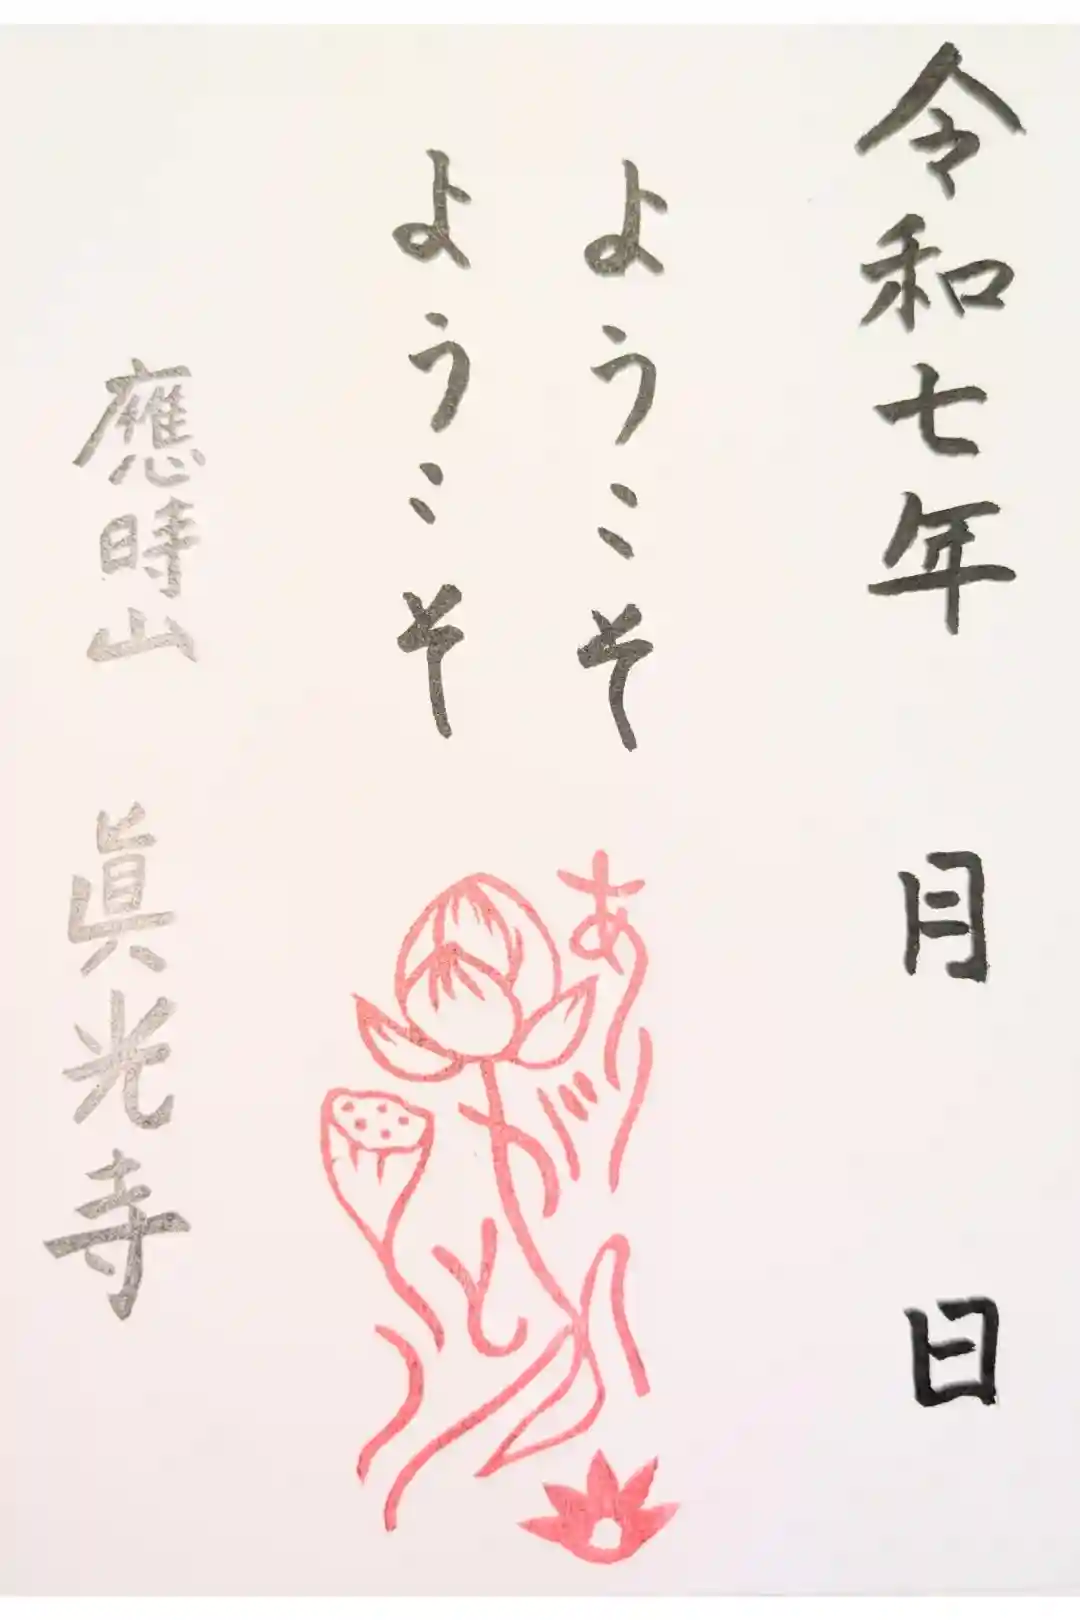 令和七年 月 日
ようこそ
ようこそ
應時山 眞光寺